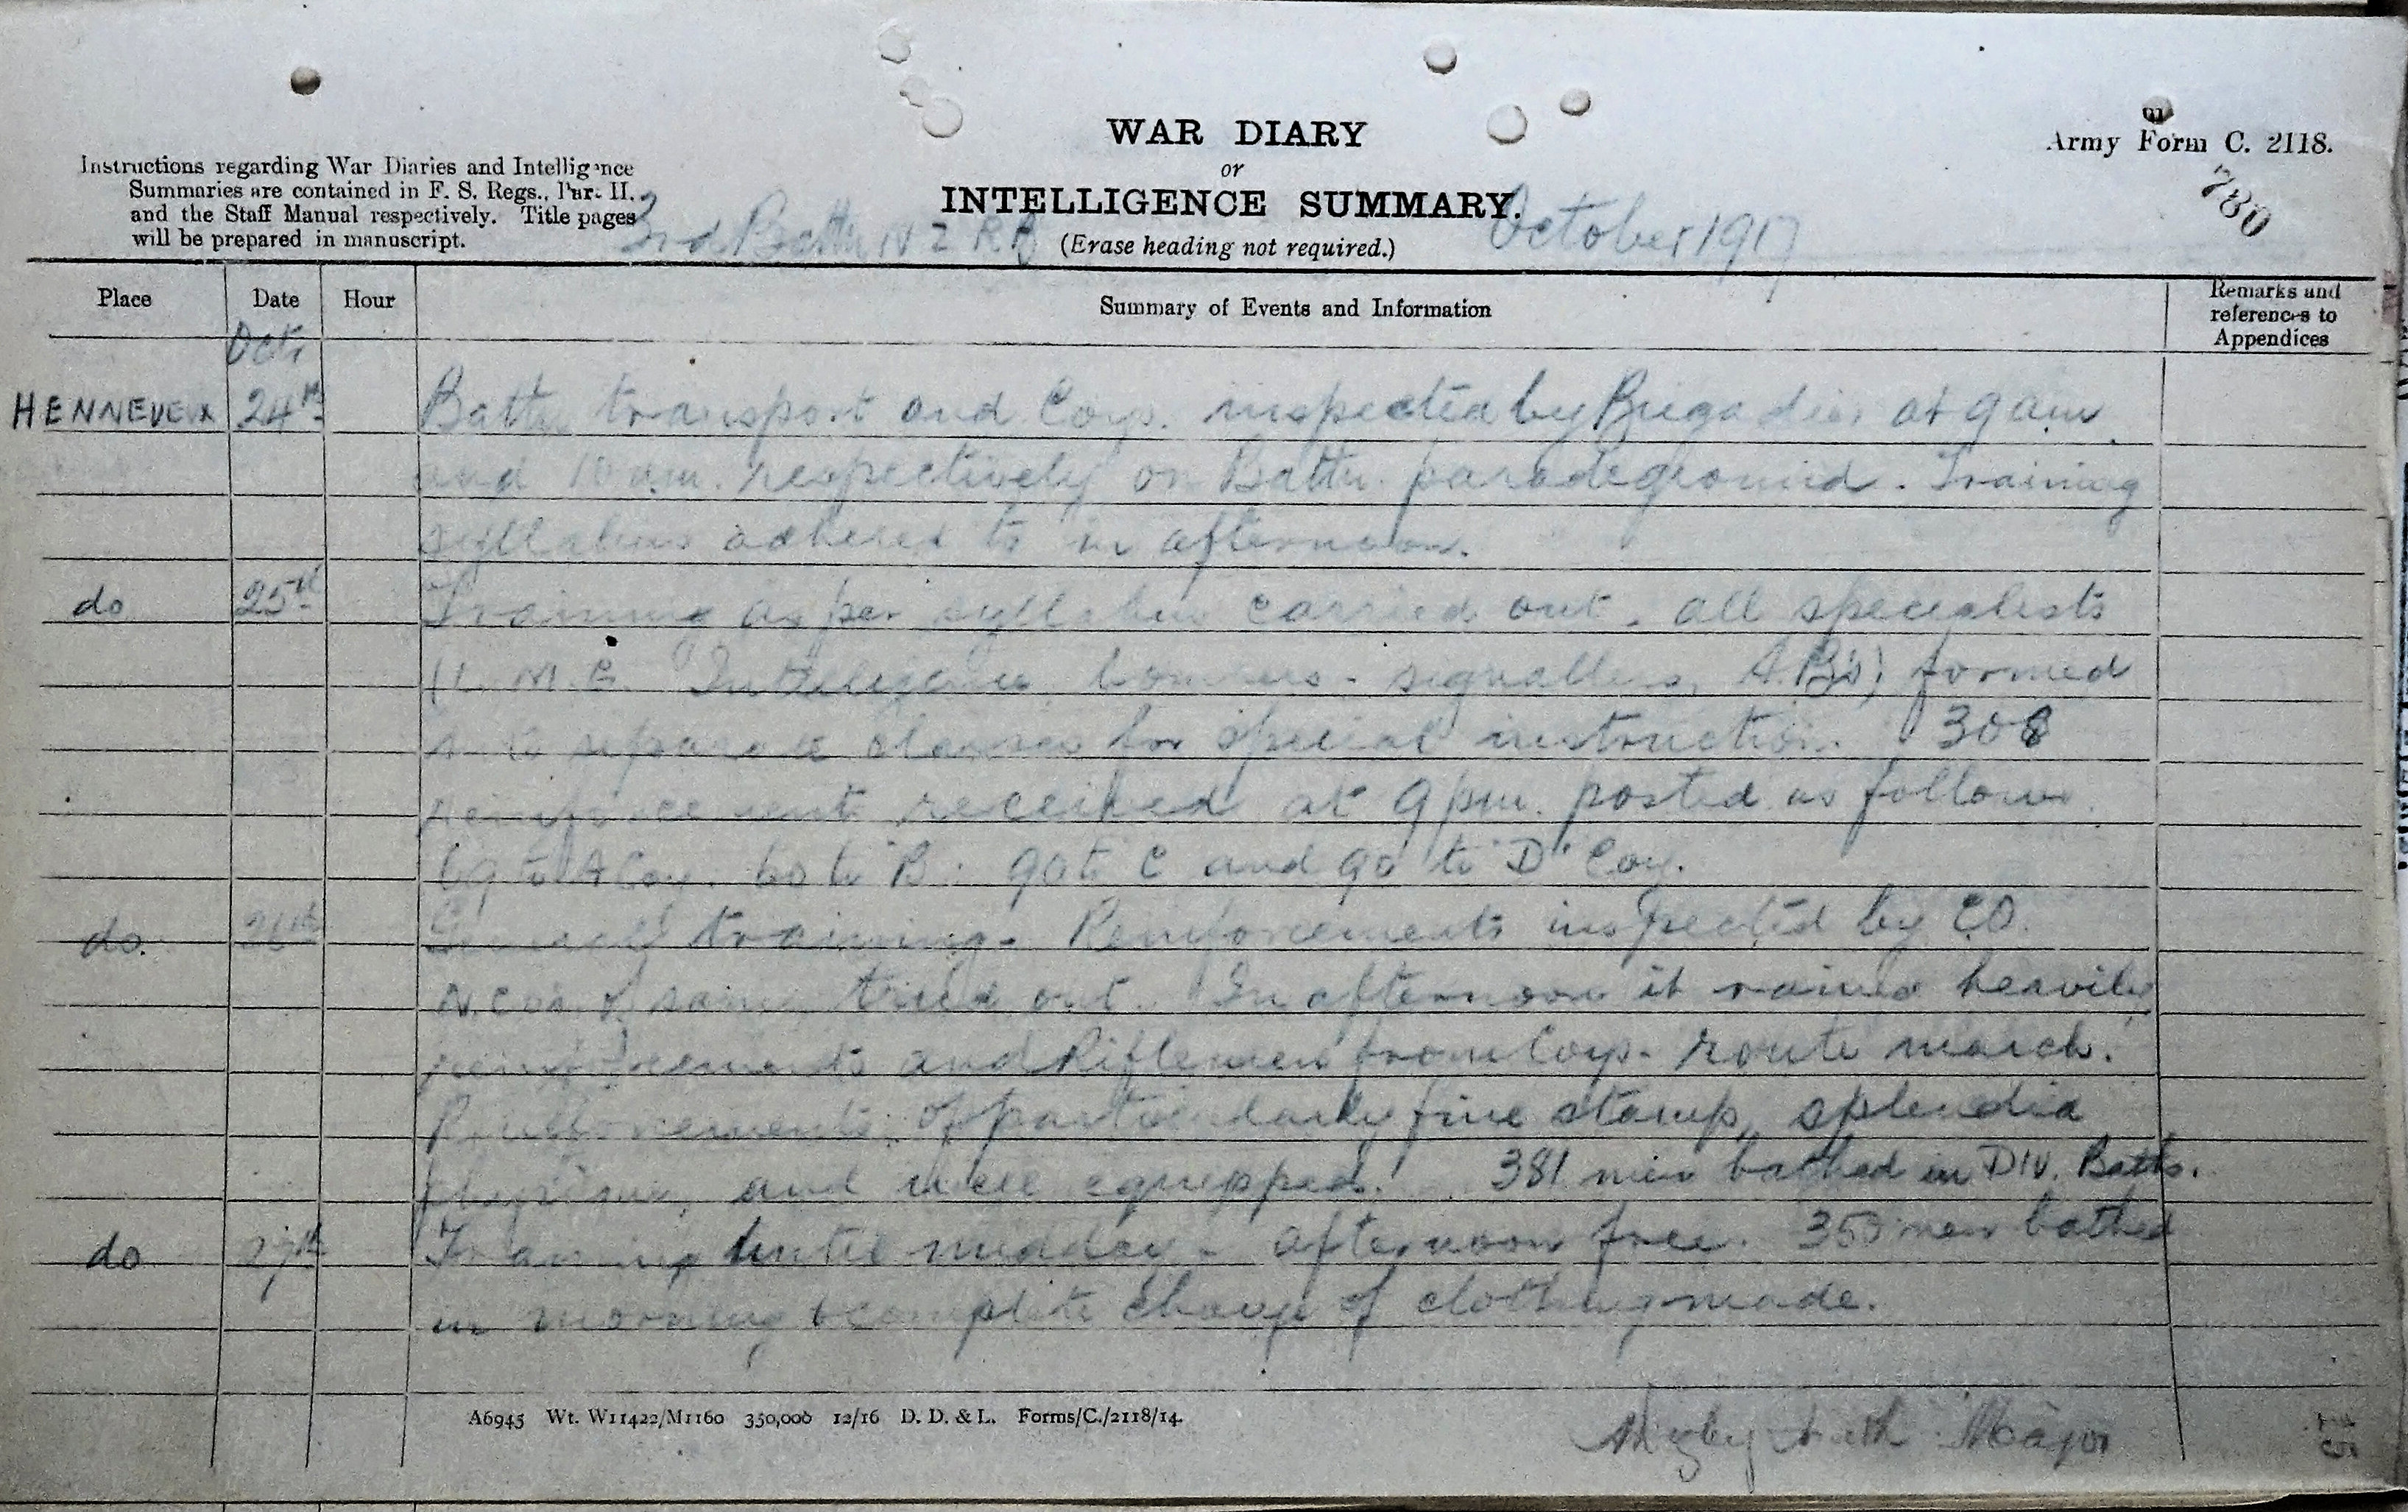 WAR DIARY
or
INTELLIGENCE SUMMARY.
(Erase heading not required.)
Army Form C. 2118.
780
Instructions regarding War Diaries and Intelligence
Summaries are contained in F. S. Regs., Part II.
and the Staff Manual respectively. Title pages
will be prepared in manuscript.
3rd Battn N Z R B
October 1917
Place Date Hour Summary of Events and Information Remarks and references to Appendices
Oct.
HENNEVEUX 24th Battn transport and Coys. inspected by Brigadier at 9 am
and 10 am. respectively on Battn. paradeground. Training
syllabus adhered to in afternoon.
do 25th Training as per syllabus carried out. all specialists
(L. M. G. Intelligence bombers - signallers, S.B's) formed
into separate classes for special instruction. 308
reinforcements received at 9 pm. posted as follows.
to A Coy. 60 to B. 90 to C and 90 to D' Coy.
do. 26th training. Reinforcements inspected by C.O.
N.C.O's of same tried out. In afternoon it rained heavily
reinforcements and Riflemen from Coys. route march.
Reinforcements of particularly fine stamp, splendid
physique, and well equipped. 381 men bathed in DIV. Baths.
do 27th Training until midday - afternoon free. 350 men bathed
in morning & complete change of clothing made.
A6945 Wt. W11422/M1160 350,000 12/16 D. D. & L. Forms/C./2118/14.
Major